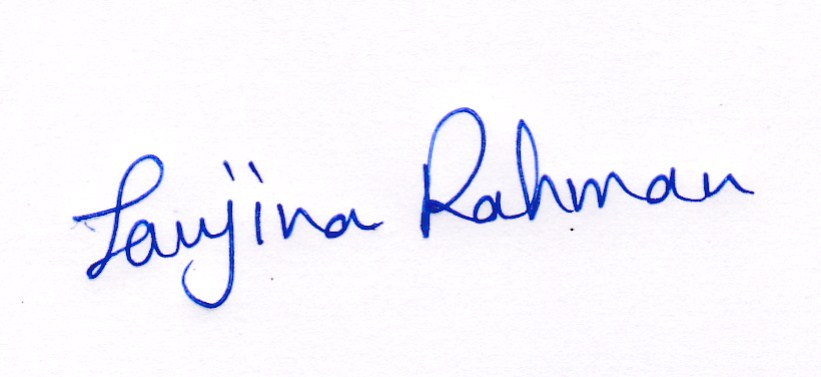 Laujina Rahman